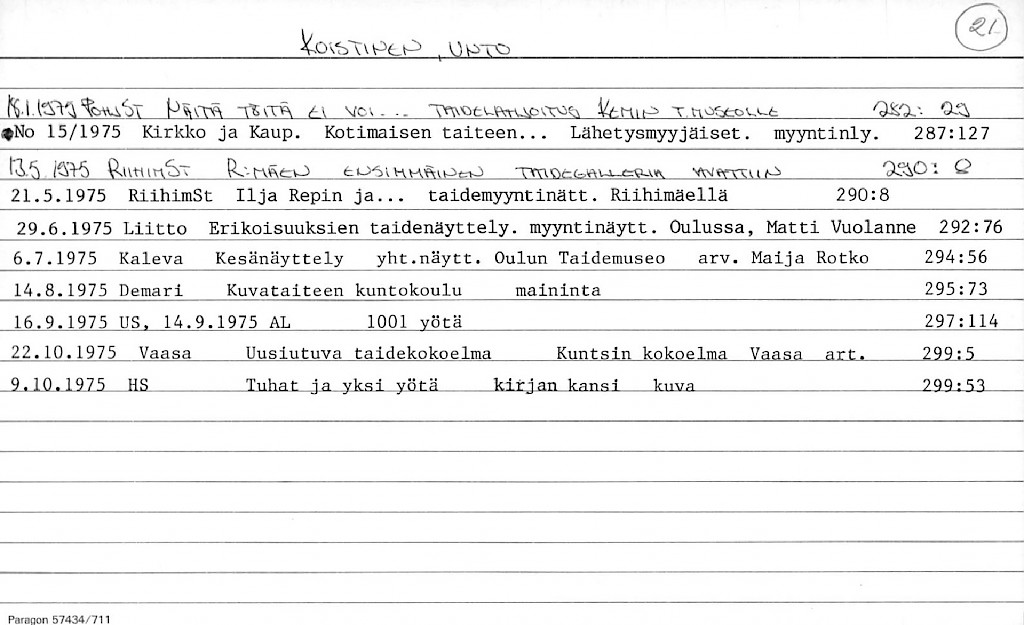 21.
KOISTINEN, UNTO
18.1.1975 POHJST NÄITÄ TÖITÄ EI VOI... TAIDELAHJOITUS KEMIN T.MUSEOLLE 282:29
No 15/1975 Kirkko ja Kaup. Kotimaisen taiteen... Lähetysmyyjäiset. myyntinly. 287:127
13.5.1975 RIIHIMST R:MÄEN ENSIMMÄINEN TAIDEGALLERIA AVATTIIN 290:8
21.5.1975 RiihimSt Ilja Repin ja... taidemyyntinätt. Riihimäellä 290:8
29.6.1975 Liitto Erikoisuuksien taidenäyttely. myyntinäytt. Oulussa, Matti Vuolanne 292:76
6.7.1975 Kaleva Kesänäyttely yht.näytt. Oulun Taidemuseo arv. Maija Rotko 294:56
14.8.1975 Demari Kuvataiteen kuntokoulu maininta 295:73
16.9.1975 US, 14.9.1975 AL 1001 yötä 297:114
22.10.1975 Vaasa Uusiutuva taidekokoelma Kuntsin kokoelma Vaasa art. 299:5
9.10.1975 HS Tuhat ja yksi yötä kirjan kansi kuva 299:53
Paragon 57434/711